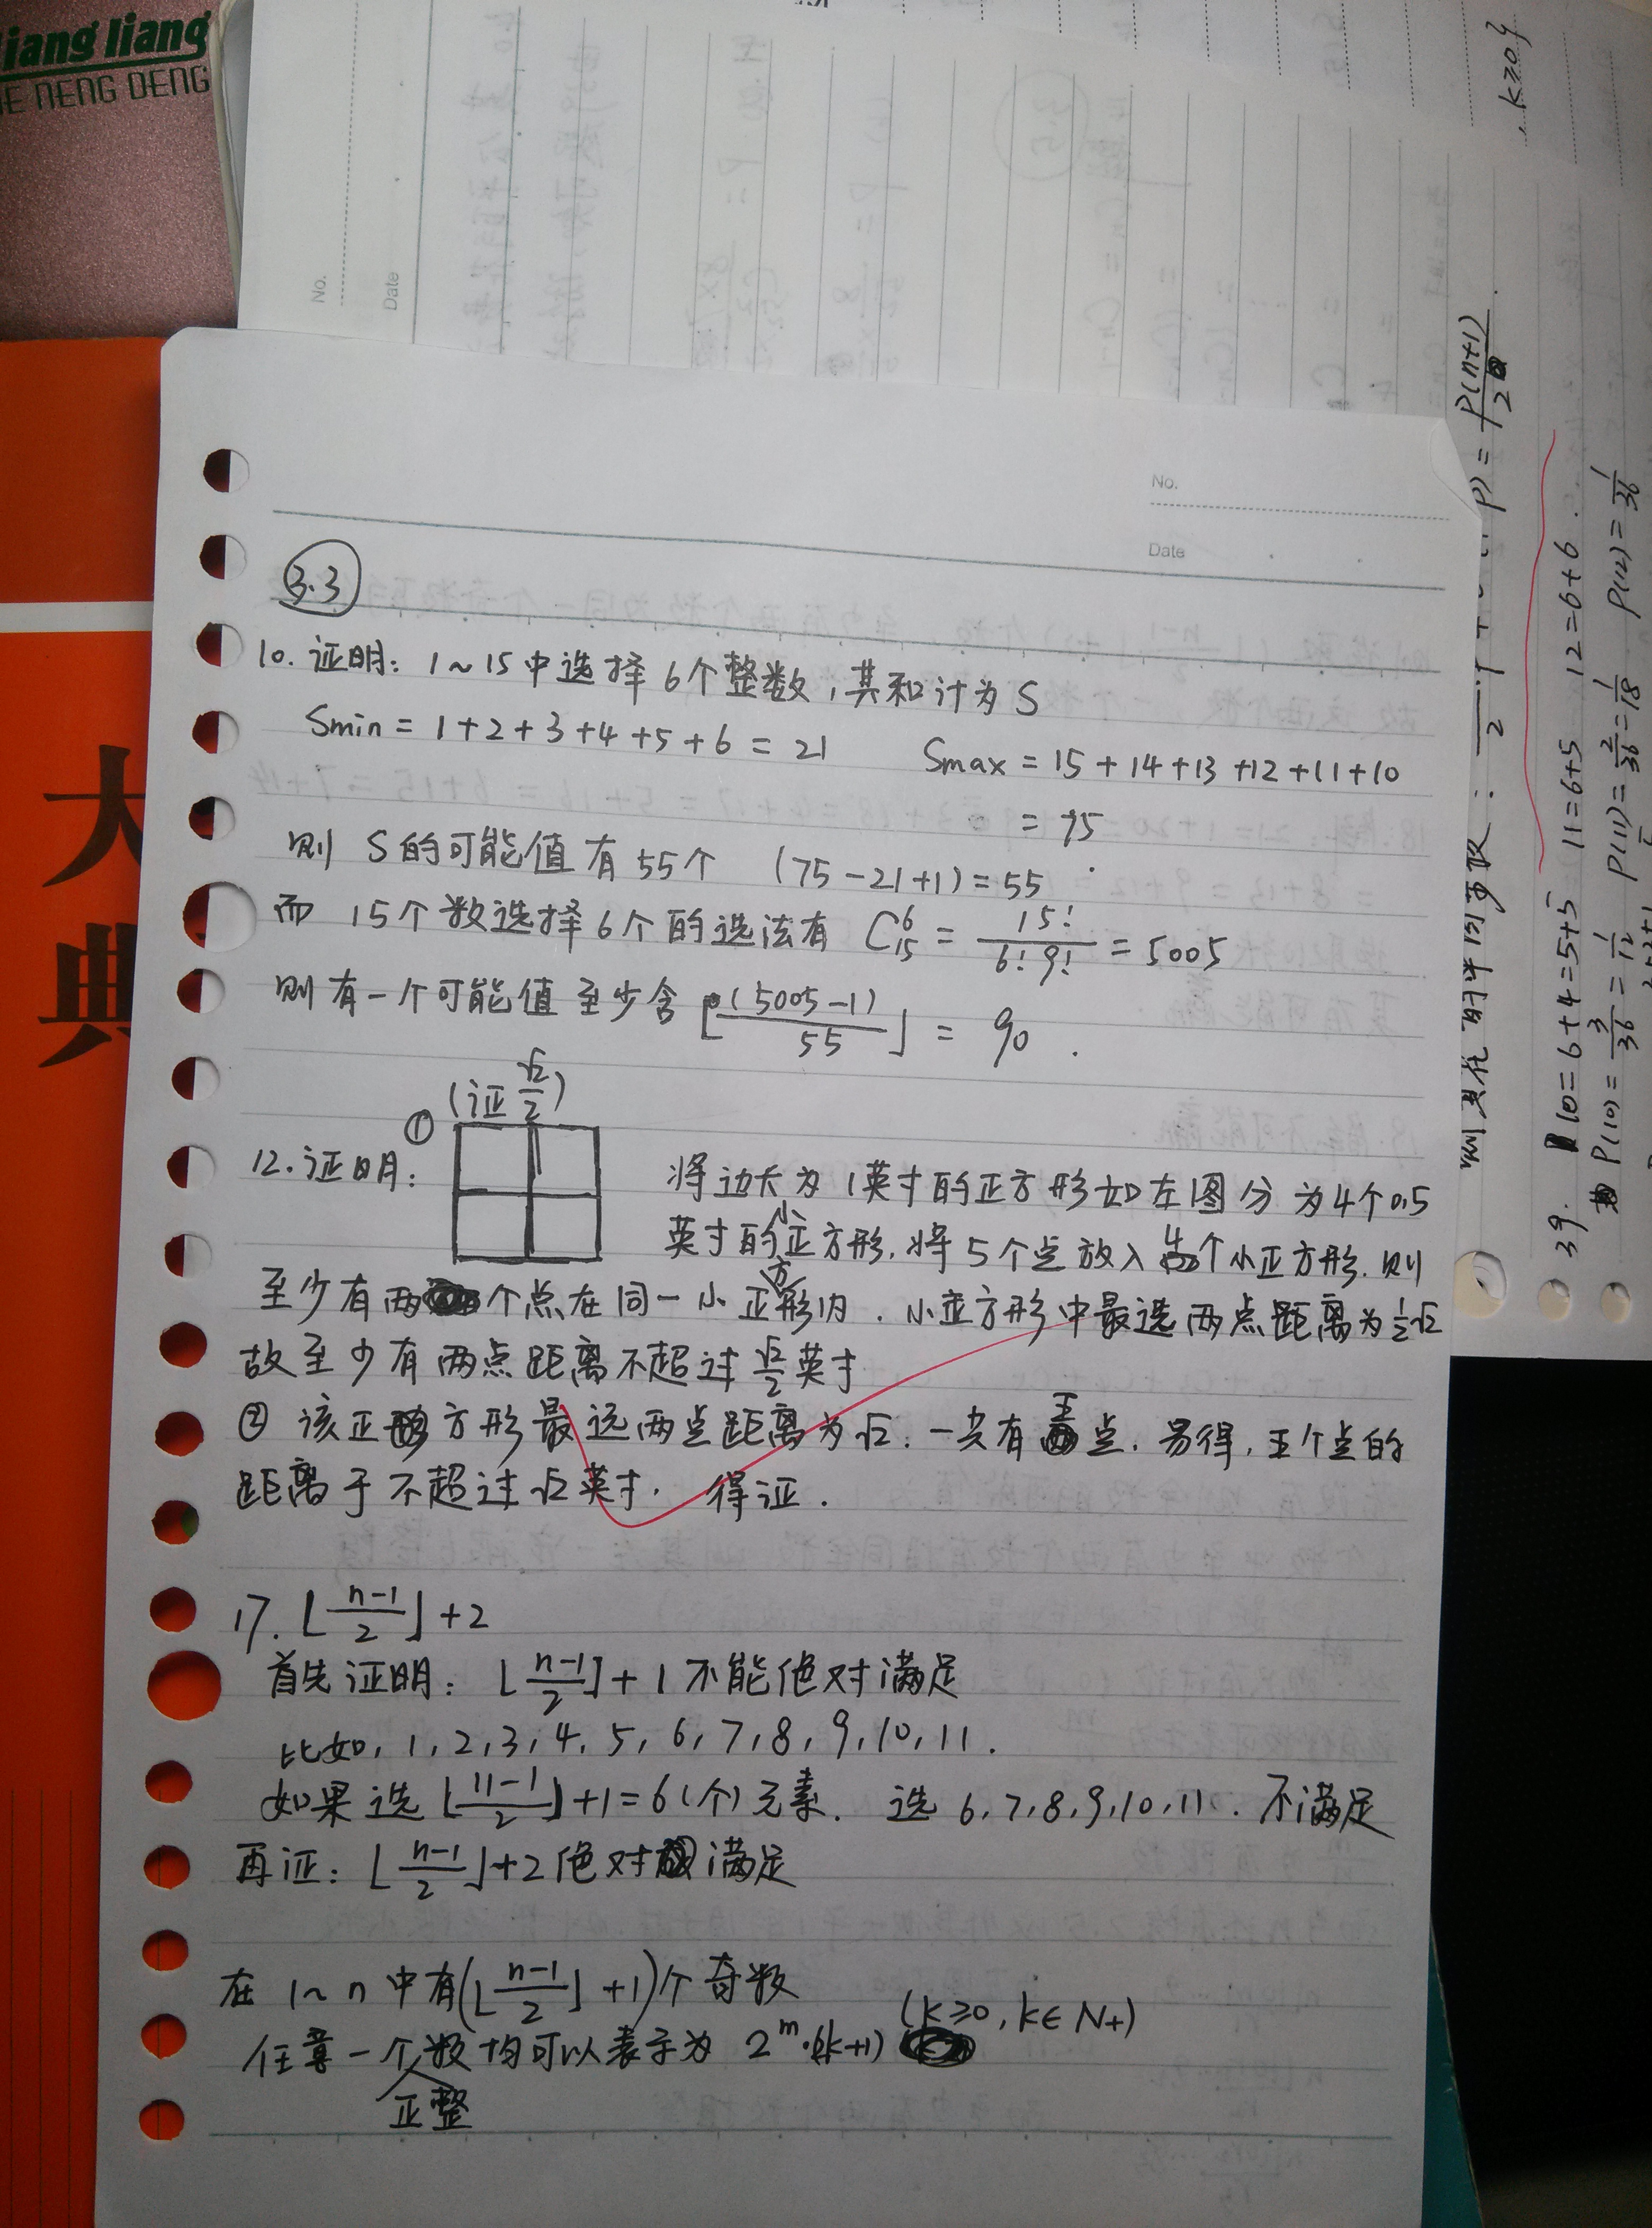 iang liang
E NENG DENG
大
典
No.
Date
, k≥0}
No.
Date
3.3
10. 证明: 1~15中选择6个整数,其和计为S
Smin = 1+2+3+4+5+6 = 21    Smax = 15+14+13+12+11+10
= 75
则 S的可能值有55个 (75-21+1)=55
而 15个数选择6个的选法有 C₁₅⁶ = 15!/(6!9!) = 5005
则有一个可能值至少含 ⌊(5005-1)/55⌋ = 90.
(证 √2/2)
①
12. 证明:
将边长为1英寸的正方形如左图分为4个0.5
英寸的小正方形,将5个点放入4个小正方形.则
至少有两个点在同一小正方形内. 小正方形中最远两点距离为½√2
故至少有两点距离不超过√2/2英寸
② 该正方形最远两点距离为√2. 一共有五点. 易得,五个点的
距离于不超过√2英寸. 得证.
17. ⌊(n-1)/2⌋+2
首先证明: ⌊(n-1)/2⌋+1不能绝对满足
比如, 1,2,3,4,5,6,7,8,9,10,11.
如果选⌊(11-1)/2⌋+1=6(个)元素. 选6,7,8,9,10,11. 不满足
再证: ⌊(n-1)/2⌋+2绝对满足
在1~n中有(⌊(n-1)/2⌋+1)个奇数
任意一个正整数均可以表示为 2ᵐ·(2k+1) (k≥0, k∈N+)
P) = P(n+1)/2
39. 10=6+4=5+5 11=6+5 12=6+6.
P(10)=3/36=1/12 P(11)=2/36=1/18 P(12)=1/36